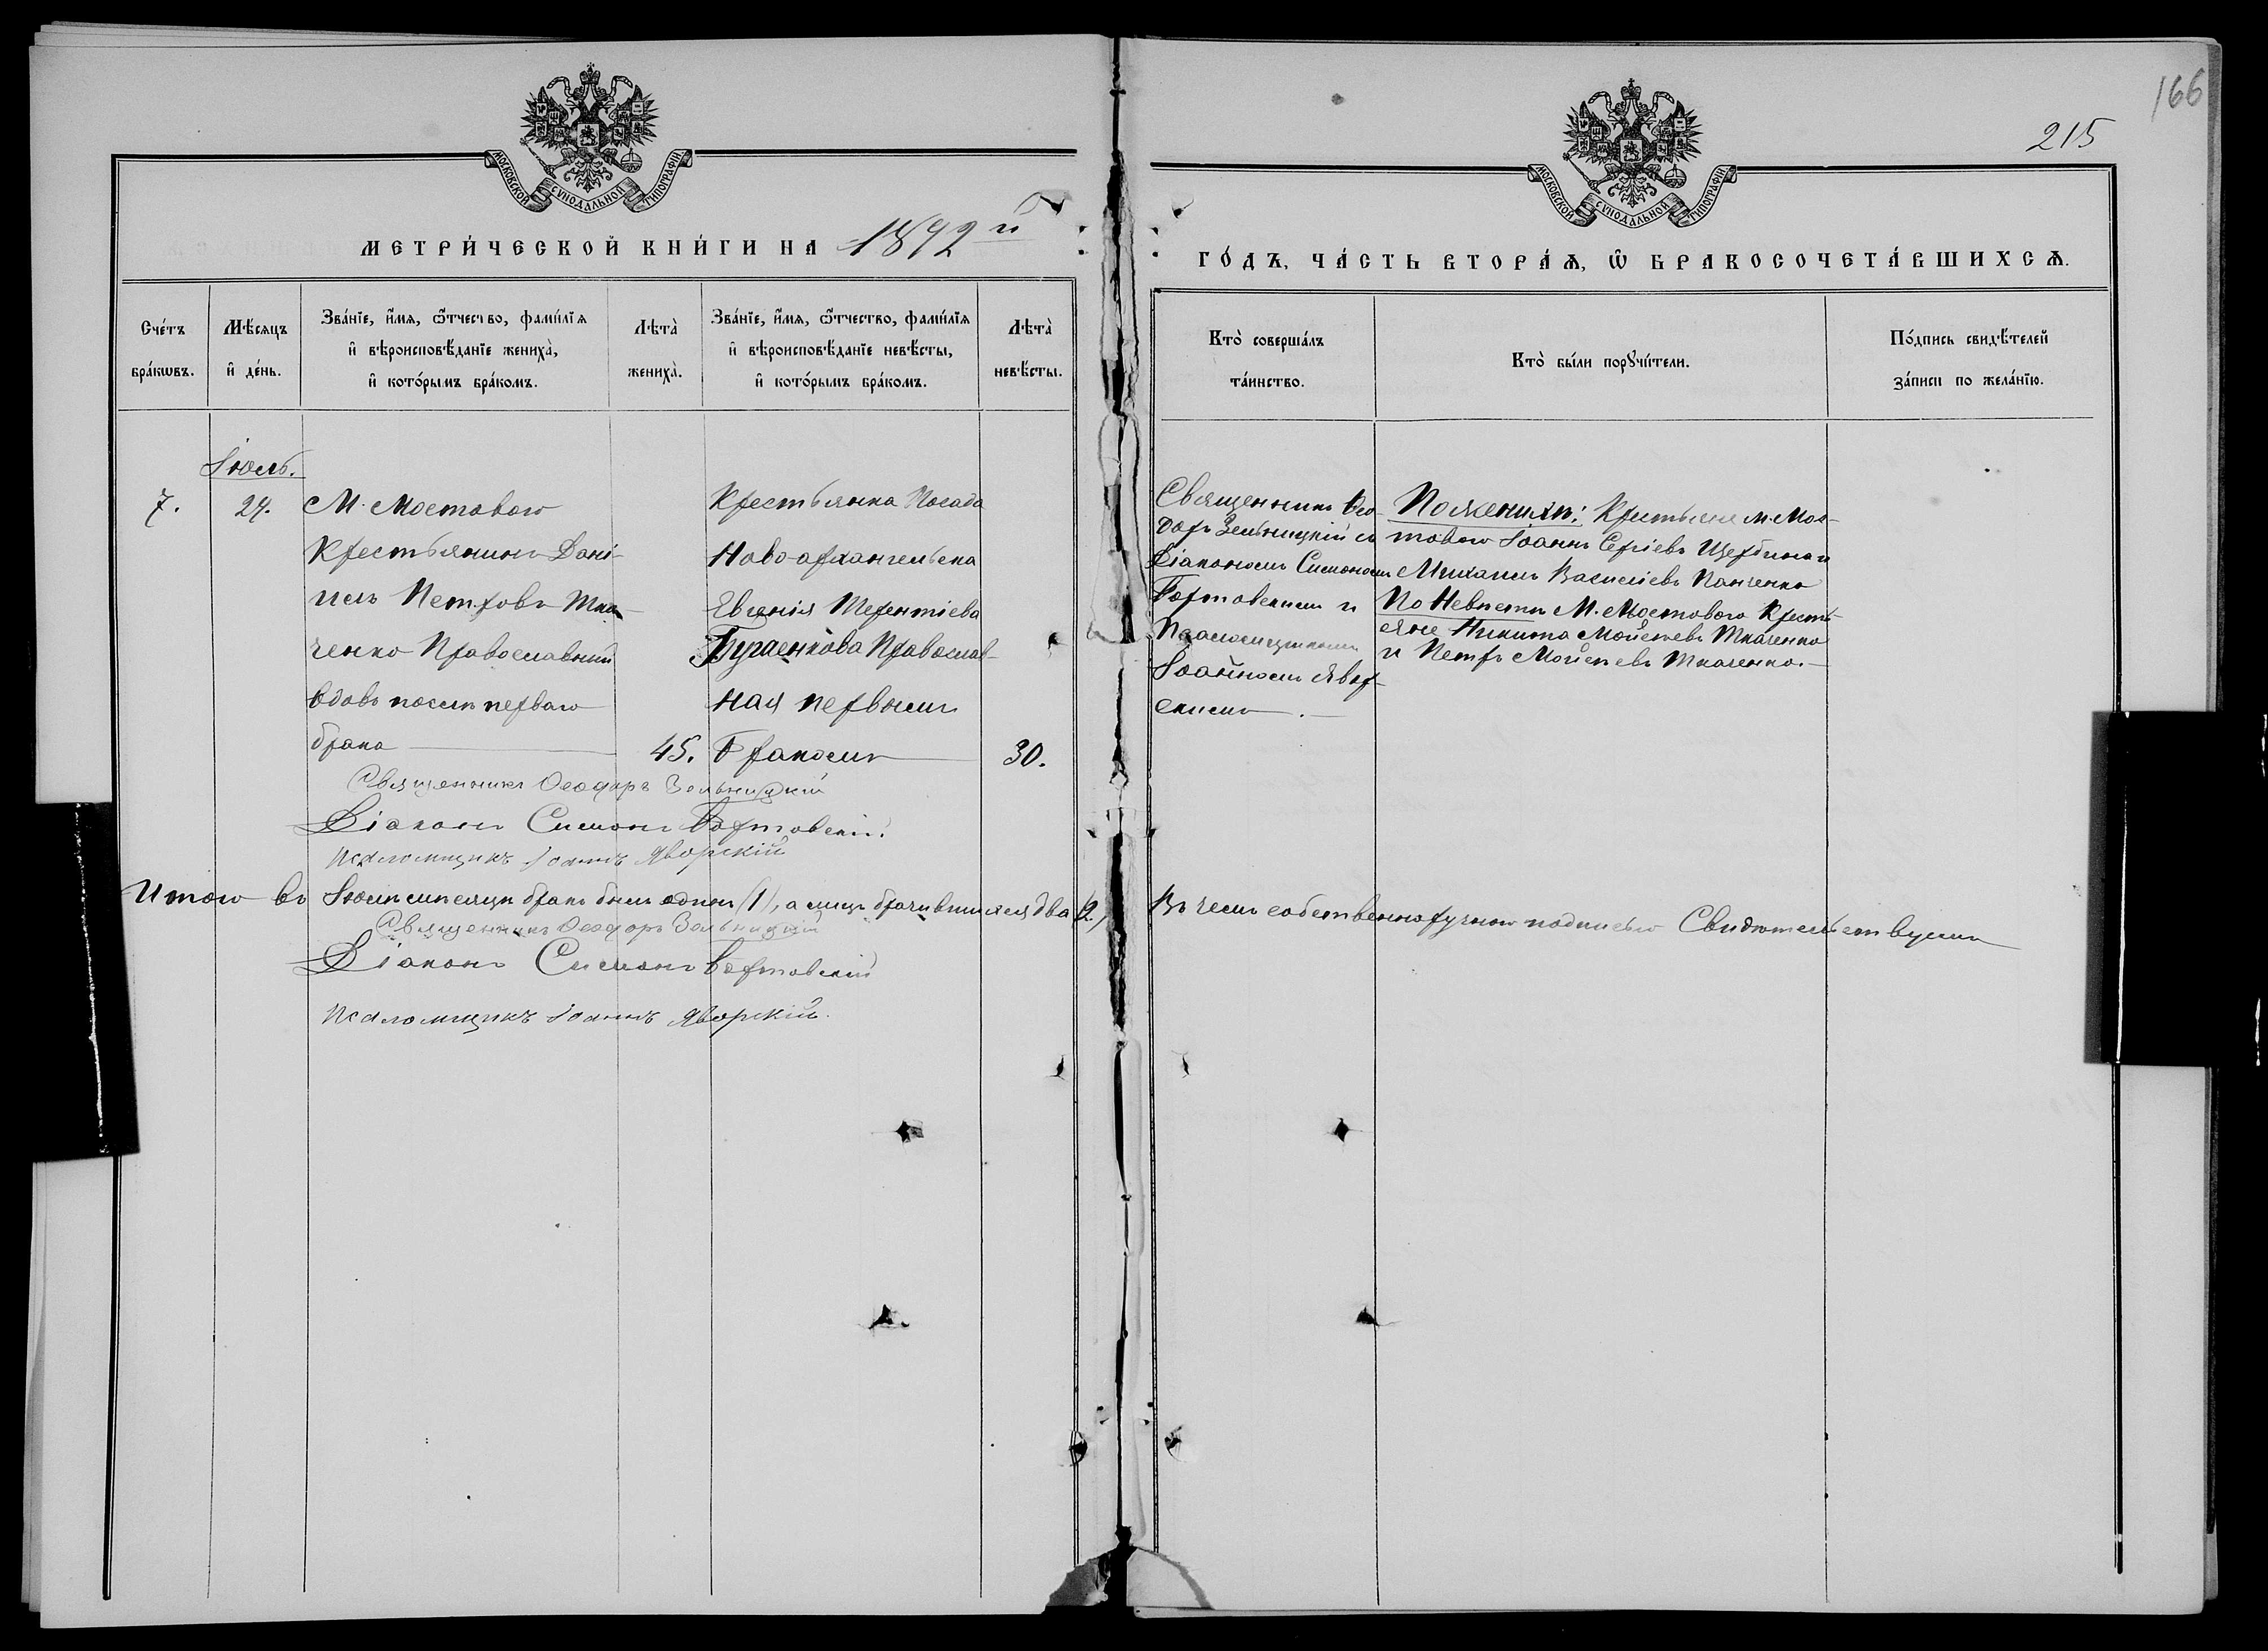 166
215
МОСКОВСКОЙ СѴНОДАЛЬНОЙ ТИПОГРАФІИ.
МОСКОВСКОЙ СѴНОДАЛЬНОЙ ТИПОГРАФІИ.
МЕТРИ́ЧЕСКОЙ КНИ́ГИ НА 1892й
ГО́ДЪ, ЧА́СТЬ ВТОРА́Ѧ, Ѽ БРАКОСОЧЕТА́ВШИХСѦ.
Сче́тъ бра́кωвъ.
Мѣ́сяцъ и҆ де́нь.
Зва́нїе, и҆́мя, ѻ҆́тчество, фами́лїя
и҆ вѣроисповѣ́данїе жениха̀,
и҆ кото́рымъ бра́комъ.
Лѣта̀ жениха̀.
Зва́нїе, и҆́мя, ѻ҆́тчество, фами́лїя
и҆ вѣроисповѣ́данїе невѣ́сты,
и҆ кото́рымъ бра́комъ.
Лѣта̀ невѣ́сты.
Кто̀ соверша́лъ та́инство.
Кто̀ бы́ли порꙋчи́тели.
По́дпись свидѣ́телей
за́писи по жела́нїю.
Іюль.
7.
24.
М. Мостового
Крестьянинъ Дані-
илъ Петровъ Тка-
ченко Православный
вдовъ послѣ перваго
брака
45.
Крестьянка Посада
Ново-архангельска
Евгенія Терентіева
Бугаенкова Православ-
ная первымъ
бракомъ
30.
Священникъ Ѳео-
доръ Зельницкій съ
Діакономъ Симономъ
Бортовскимъ и
Псаломщикомъ
Іоанномъ Явор-
скимъ.
По женихѣ: Крестьяне м. Мос-
тового Іоаннъ Сергіевъ Щербина и
Михаилъ Василіевъ Панченко
По Невѣстѣ М. Мостового Кресть-
яне Никита Мойсеевъ Ткаченко
и Петръ Мойсеевъ Ткаченко.
Священникъ Ѳеодоръ Зельницкій
Діаконъ Симонъ Бортовскій
Псаломщикъ Іоаннъ Яворскій
Итого въ Іюлѣ мѣсяцѣ бракъ былъ одинъ (1), а лицъ брачившихся два (2,)
Въ чемъ собственноручною подписью Свидѣтельствуемъ
Священникъ Ѳеодоръ Зельницкій
Діаконъ Симонъ Бортовскій
Псаломщикъ Іоаннъ Яворскій.